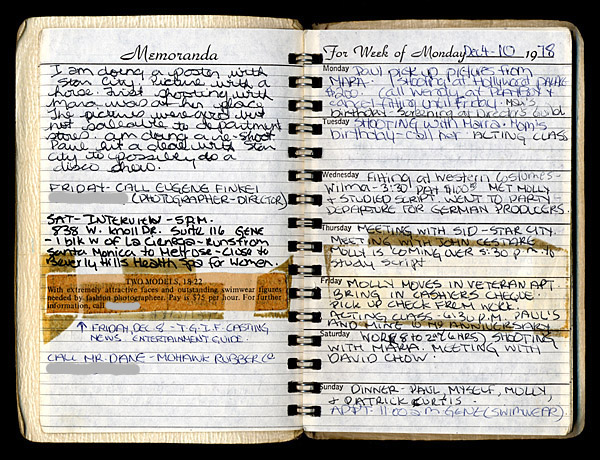 Memoranda
I am doing a poster with
Star City picture with a
horse. First shooting with
Mara was at her place
The pictures were good but
not saleable to department
stores. I am doing a re-shoot.
Paul hit a deal with Star
City to possibly do a
disco show.
FRIDAY- CALL EUGENE FINKEI
(PHOTOGRAPHER-DIRECTOR)
SAT- INTERVIEW - 5 P.M.
838 W. Knoll DR. SUITE 116 GENE
- 1 blk W of La Cienega - Runs from
Santa Monica to Melrose - Close to
Beverly Hills Health Spa for Women.
TWO MODELS, 18-22
With extremely attractive faces and outstanding swimwear figures
needed by fashion photographer. Pay is $75 per hour. For further
information, call
↑ FRIDAY, DEC 8 - T.G.I.F. CASTING
NEWS. ENTERTAINMENT GUIDE.
CALL MR. DANE - MOHAWK RUBBER CO
For Week of Monday Dec 4-10 1978
Monday Paul pick up pictures from
MARA. Shooting at Hollywood
$200. Call Wendy at PLAYBOY &
cancel fitting until Friday. Mom's
birthday Screening at Director's Guild
Tuesday SHOOTING with Marra. Mom's
birthday - call her. ACTING CLASS
Wednesday Fitting at Western Costumes -
Wilma - 3:30 MET MOLLY
& STUDIED SCRIPT. WENT TO PARTY
DEPARTURE FOR GERMAN PRODUCERS.
Thursday MEETING WITH SID - STAR CITY.
MEETING WITH JOHN CESTARE
MOLLY IS COMING OVER 5:30 P.M. TO
Study Script
Friday MOLLY MOVES IN VETERAN APT.
BRING IN CASHIERS CHEQUE.
PICK UP CHECK FROM WORK.
ACTING CLASS - 4:30 P.M. PAUL'S
AND MINE 10 MO ANNIVERSARY
Saturday WORK (8 to 2 (6 HRS) SHOOTING
WITH MARRA. MEETING WITH
DAVID CHOW.
Sunday DINNER - PAUL, MYSELF, MOLLY,
& PATRICK CURTIS.
APPT. 11:00 A.M. GENE (SWIMWEAR).